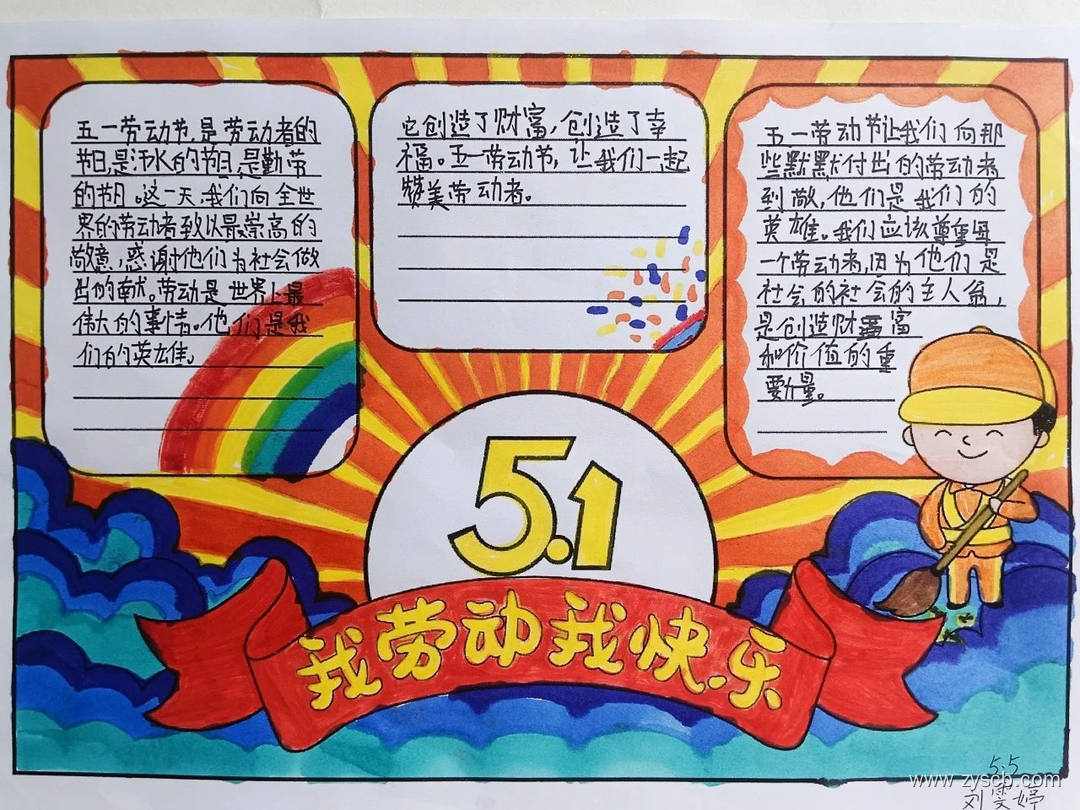 五一劳动节,是劳动者的
节日,是汗水的节日,是勤劳
的节日。这一天,我们向全世
界的劳动者致以最崇高的
敬意,感谢他们为社会做
出的奉献。劳动是世界上最
伟大的事情。他们是我
们的英雄。
它创造了财富,创造了幸
福。五一劳动节,让我们一起
赞美劳动者。
五一劳动节让我们向那
些默默付出的劳动者
到敬,他们是我们的
英雄。我们应该尊重每
一个劳动者,因为他们是
社会的社会的主人翁,
是创造财富
和价值的重
要力量。
5.1
我劳动我快乐
5.5
刘雯婷
www.zyscb.com